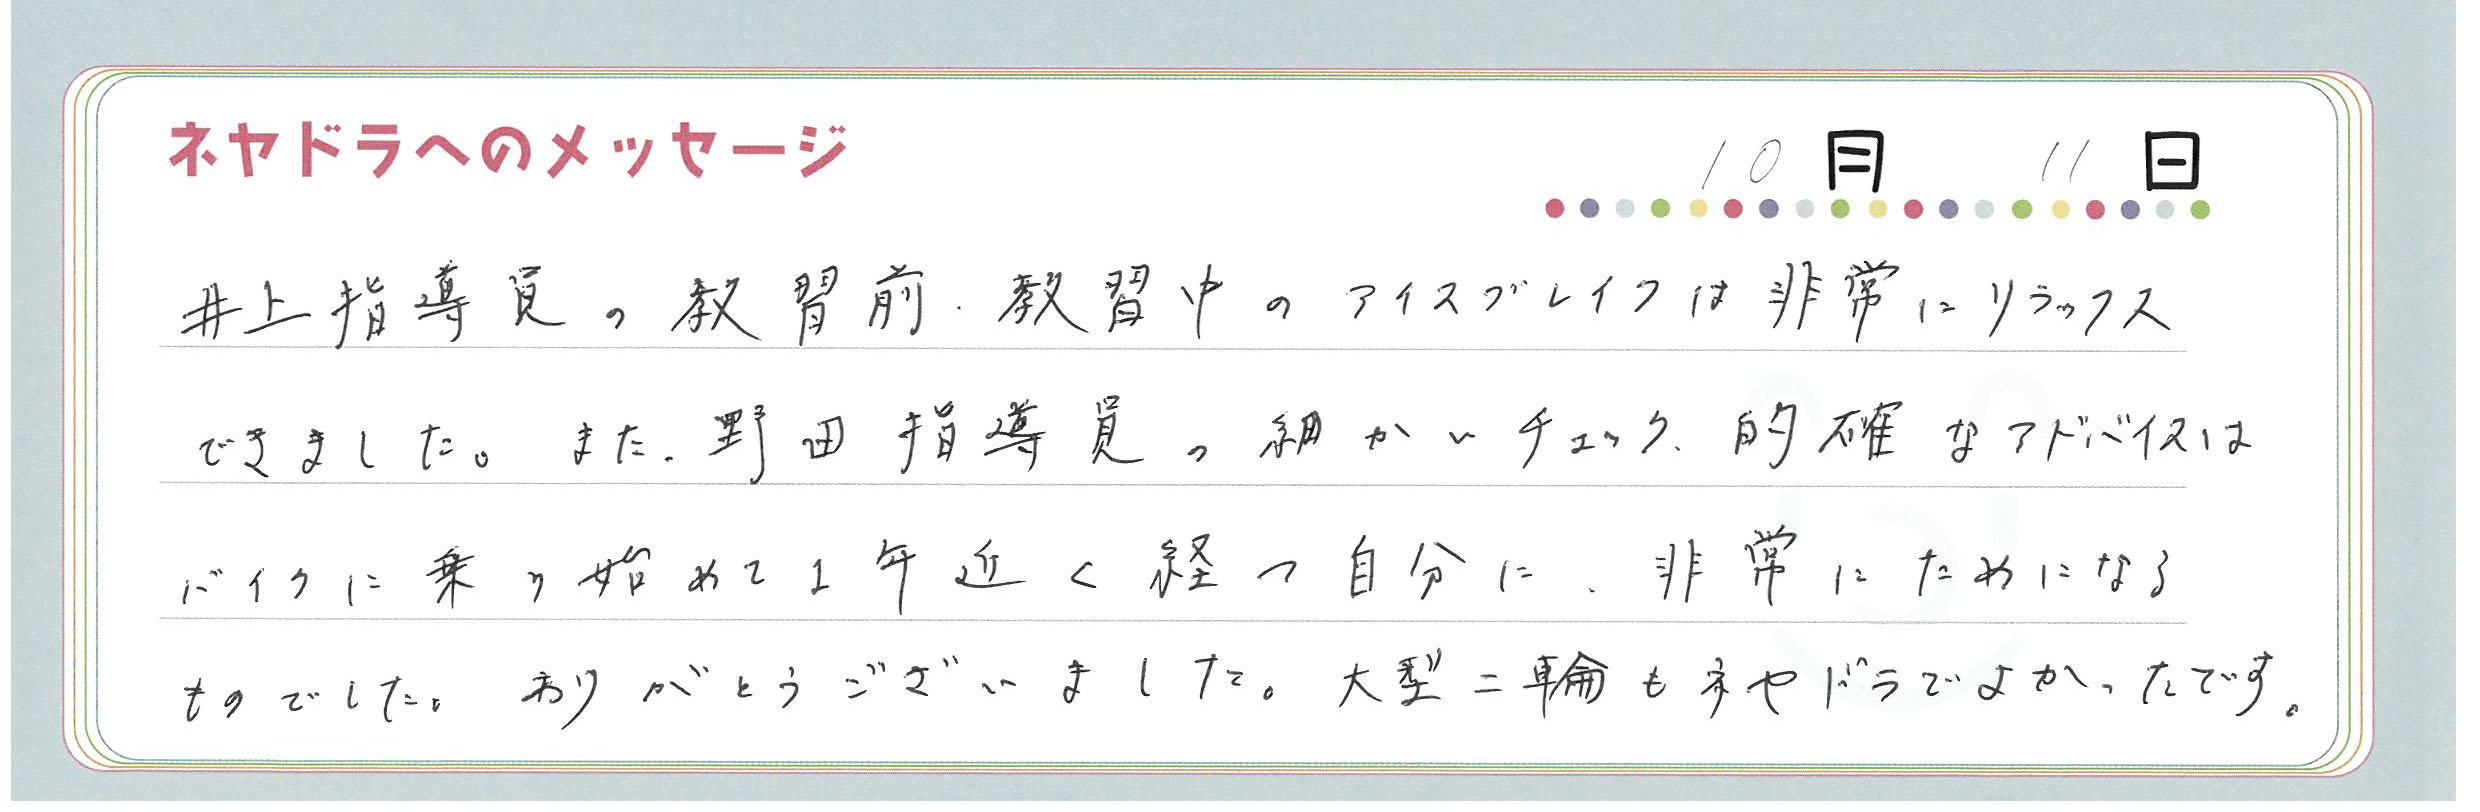 ネヤドラへのメッセージ
10月 11日
井上指導員の教習前、教習中のアイスブレイクは非常にリラックス
できました。また、野田指導員の細かいチェック、的確なアドバイスは
バイクに乗り始めて1年近く経つ自分に、非常にためになる
ものでした。ありがとうございました。大型二輪もネヤドラでよかったです。